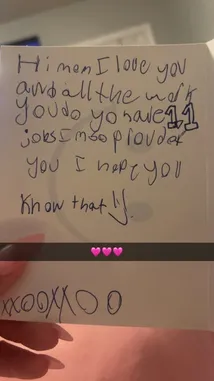 Hi mom I love you
and all the work
you do yo have 11
jobs Im so proud of
you I hope you
know that :)
🩷🩷🩷
xxooxxoo